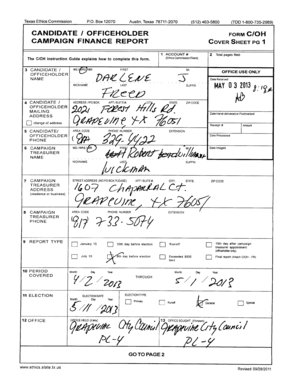 Texas Ethics Commission P.O. Box 12070 Austin, Texas 78711-2070 (512) 463-5800 (TDD 1-800-735-2989)
CANDIDATE / OFFICEHOLDER
CAMPAIGN FINANCE REPORT
FORM C/OH
COVER SHEET PG 1
The C/OH Instruction Guide explains how to complete this form.
1 ACCOUNT #
(Ethics Commission Filers)
2 Total pages filed:
3 CANDIDATE / OFFICEHOLDER NAME
MS / MRS / MR FIRST MI
DARLENE J
NICKNAME LAST SUFFIX
FREED
OFFICE USE ONLY
Date Received
MAY 03 2013
4 CANDIDATE / OFFICEHOLDER MAILING ADDRESS
change of address
ADDRESS / PO BOX; APT / SUITE #; CITY; STATE; ZIP CODE
2021 Forest Hills Rd.
GRAPEVINE TX 76051
Date Hand-delivered or Postmarked
5 CANDIDATE/ OFFICEHOLDER PHONE
AREA CODE PHONE NUMBER EXTENSION
(817) 329-4422
Receipt # Amount
Date Processed
6 CAMPAIGN TREASURER NAME
MS / MRS / MR FIRST MI
Robert
NICKNAME LAST SUFFIX
WICKMAN
Date Imaged
7 CAMPAIGN TREASURER ADDRESS
(residence or business)
STREET ADDRESS (NO PO BOX PLEASE); APT / SUITE #; CITY; STATE; ZIP CODE
1607 CHAPARRAL CT.
GRAPEVINE, TX 76051
8 CAMPAIGN TREASURER PHONE
AREA CODE PHONE NUMBER EXTENSION
817 733-5074
9 REPORT TYPE
January 15 30th day before election Runoff 15th day after campaign treasurer appointment (officeholder only)
July 15 8th day before election Exceeded $500 limit Final report (Attach C/OH - FR)
10 PERIOD COVERED
Month Day Year THROUGH Month Day Year
4/2/2013 5/1/2013
11 ELECTION
ELECTION DATE
Month Day Year
5/11/2013
ELECTION TYPE
Primary Runoff General Special
12 OFFICE
OFFICE HELD (if any)
GRAPEVINE City Council
PL-4
13 OFFICE SOUGHT (if known)
Grapevine City Council
PL-4
GO TO PAGE 2
www.ethics.state.tx.us Revised 09/28/2011